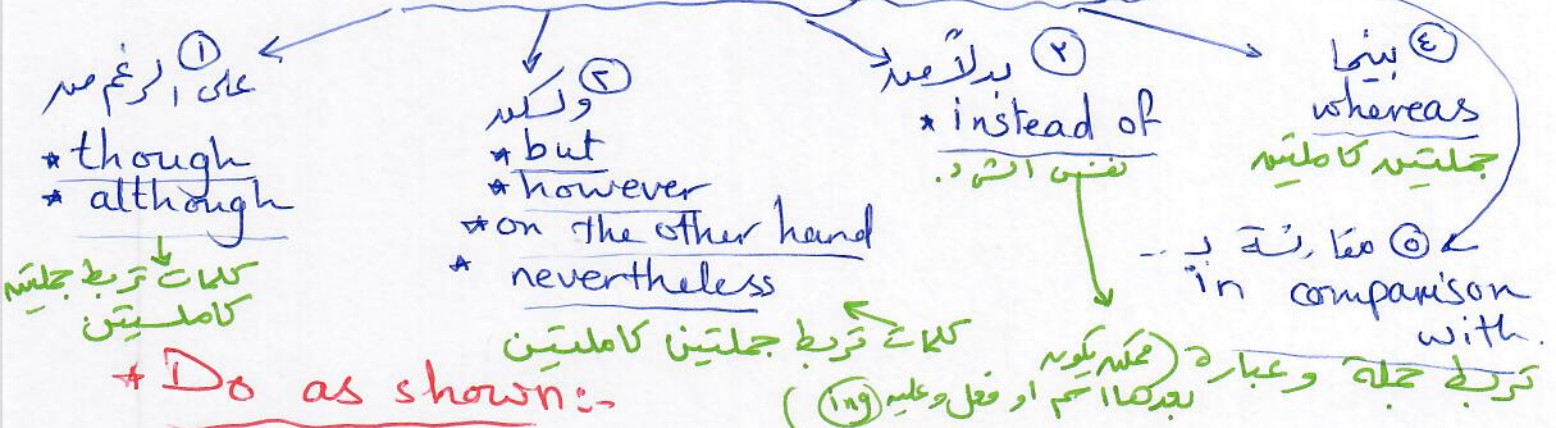 ① على الرغم من
* though
* although
كلمات تربط جملتين
كاملتين
② ولكن
* but
* however
* on the other hand
* nevertheless
كلمات تربط جملتين كاملتين
③ بدلاً من
* instead of
نفس الشرد.
④ بينما
whereas
جملتين كاملتين
⑤ مقارنة بـ ..
in comparison
with.
تربط جملة وعبارة (ممكن يكون
بعدها اسم او فعل وعليه ing)
* Do as shown:-